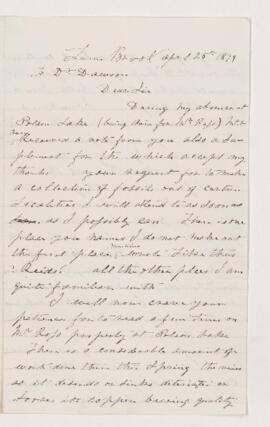 Brook April 25th 1879
To Dr Dawson
Dear Sir
During my absence at
Polson Lake (being there for Mr Ross) Mrs
Received a note from you also a Sup
plement for the which accept my
thanks your request for to make
a collection of fossils out of certain
Localities I will attend to as soon as
as I possibly can. There is one
place you name I do not make out
the first place, mentioned wrote like this
"Reids" all the other places I am
quite familiar with
I will now crave your
patience for to read a few lines on
Mr Ross property at Polson Lake
There is a considerable amount of
work done there this Spring the veins
as it descends or sinks deteriate or
looses its copper bearing quality